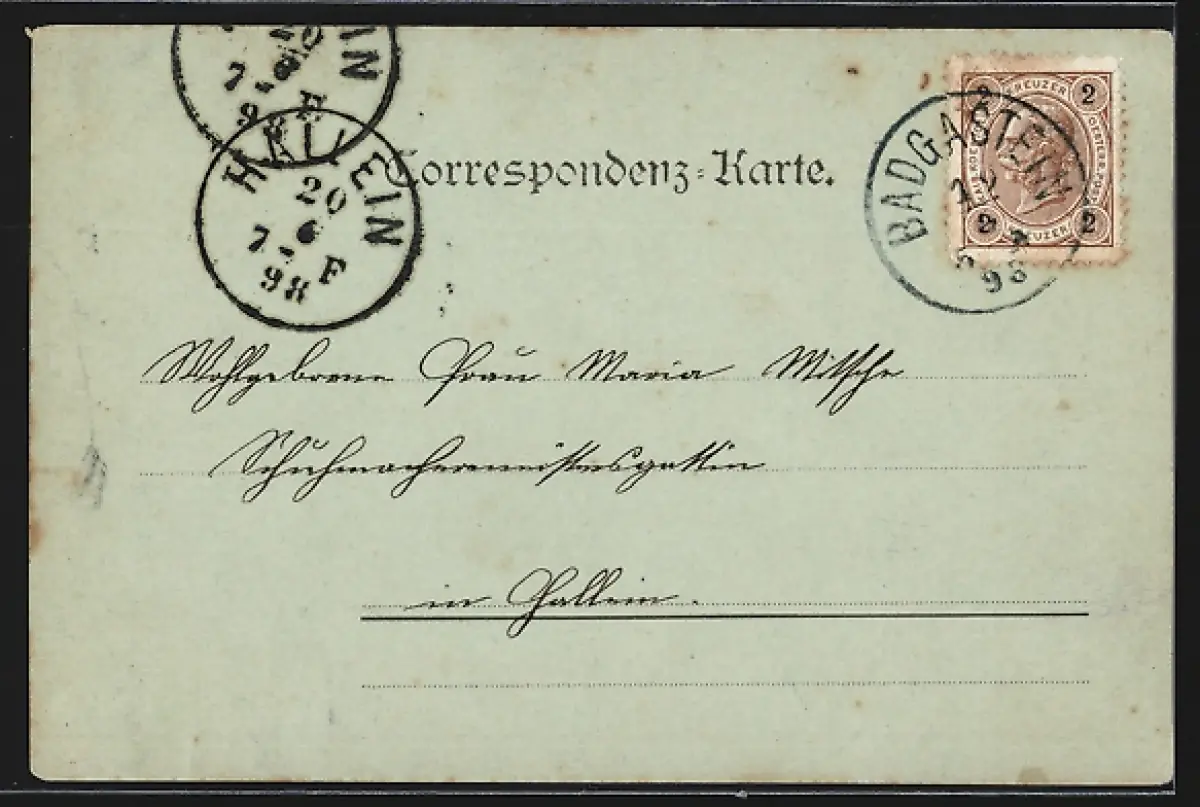 HALLEIN
20
6
7-F
98
Correspondenz-Karte.
BADGASTEIN
98
2 KREUZER 2
2 KREUZER 2
Wohlgeborene Frau Maria Mitsche
Schuhmachermeistersgattin
in Hallein.